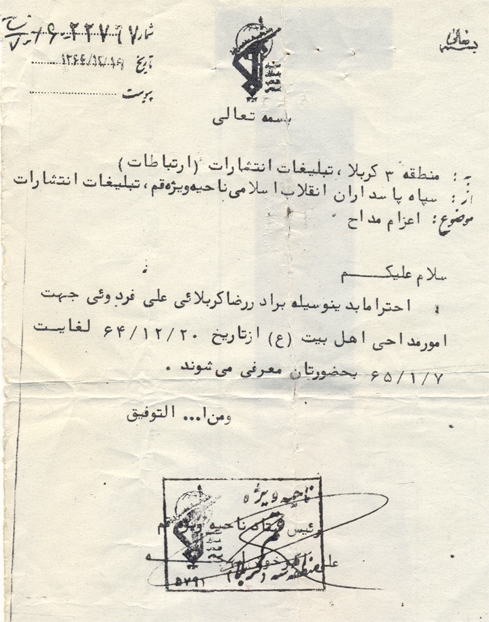 بسمه تعالی
تاریخ
پیوست
بسمه تعالی
به: منطقه ۳ کربلا، تبلیغات انتشارات (ارتباطات)
از: سپاه پاسداران انقلاب اسلامی ناحیه ویژه قم، تبلیغات انتشارات
موضوع: اعزام مداح
سلام علیکم
احتراما بدینوسیله برادر رضا کربلائی علی فردوئی جهت
امور مداحی اهل بیت (ع) از تاریخ ۶۴/۱۲/۲۰ لغایت
۶۵/۱/۷ بحضورتان معرفی می شوند.
ومن ا... التوفیق
ناحیه ویژه
قم
۵۷۹۱